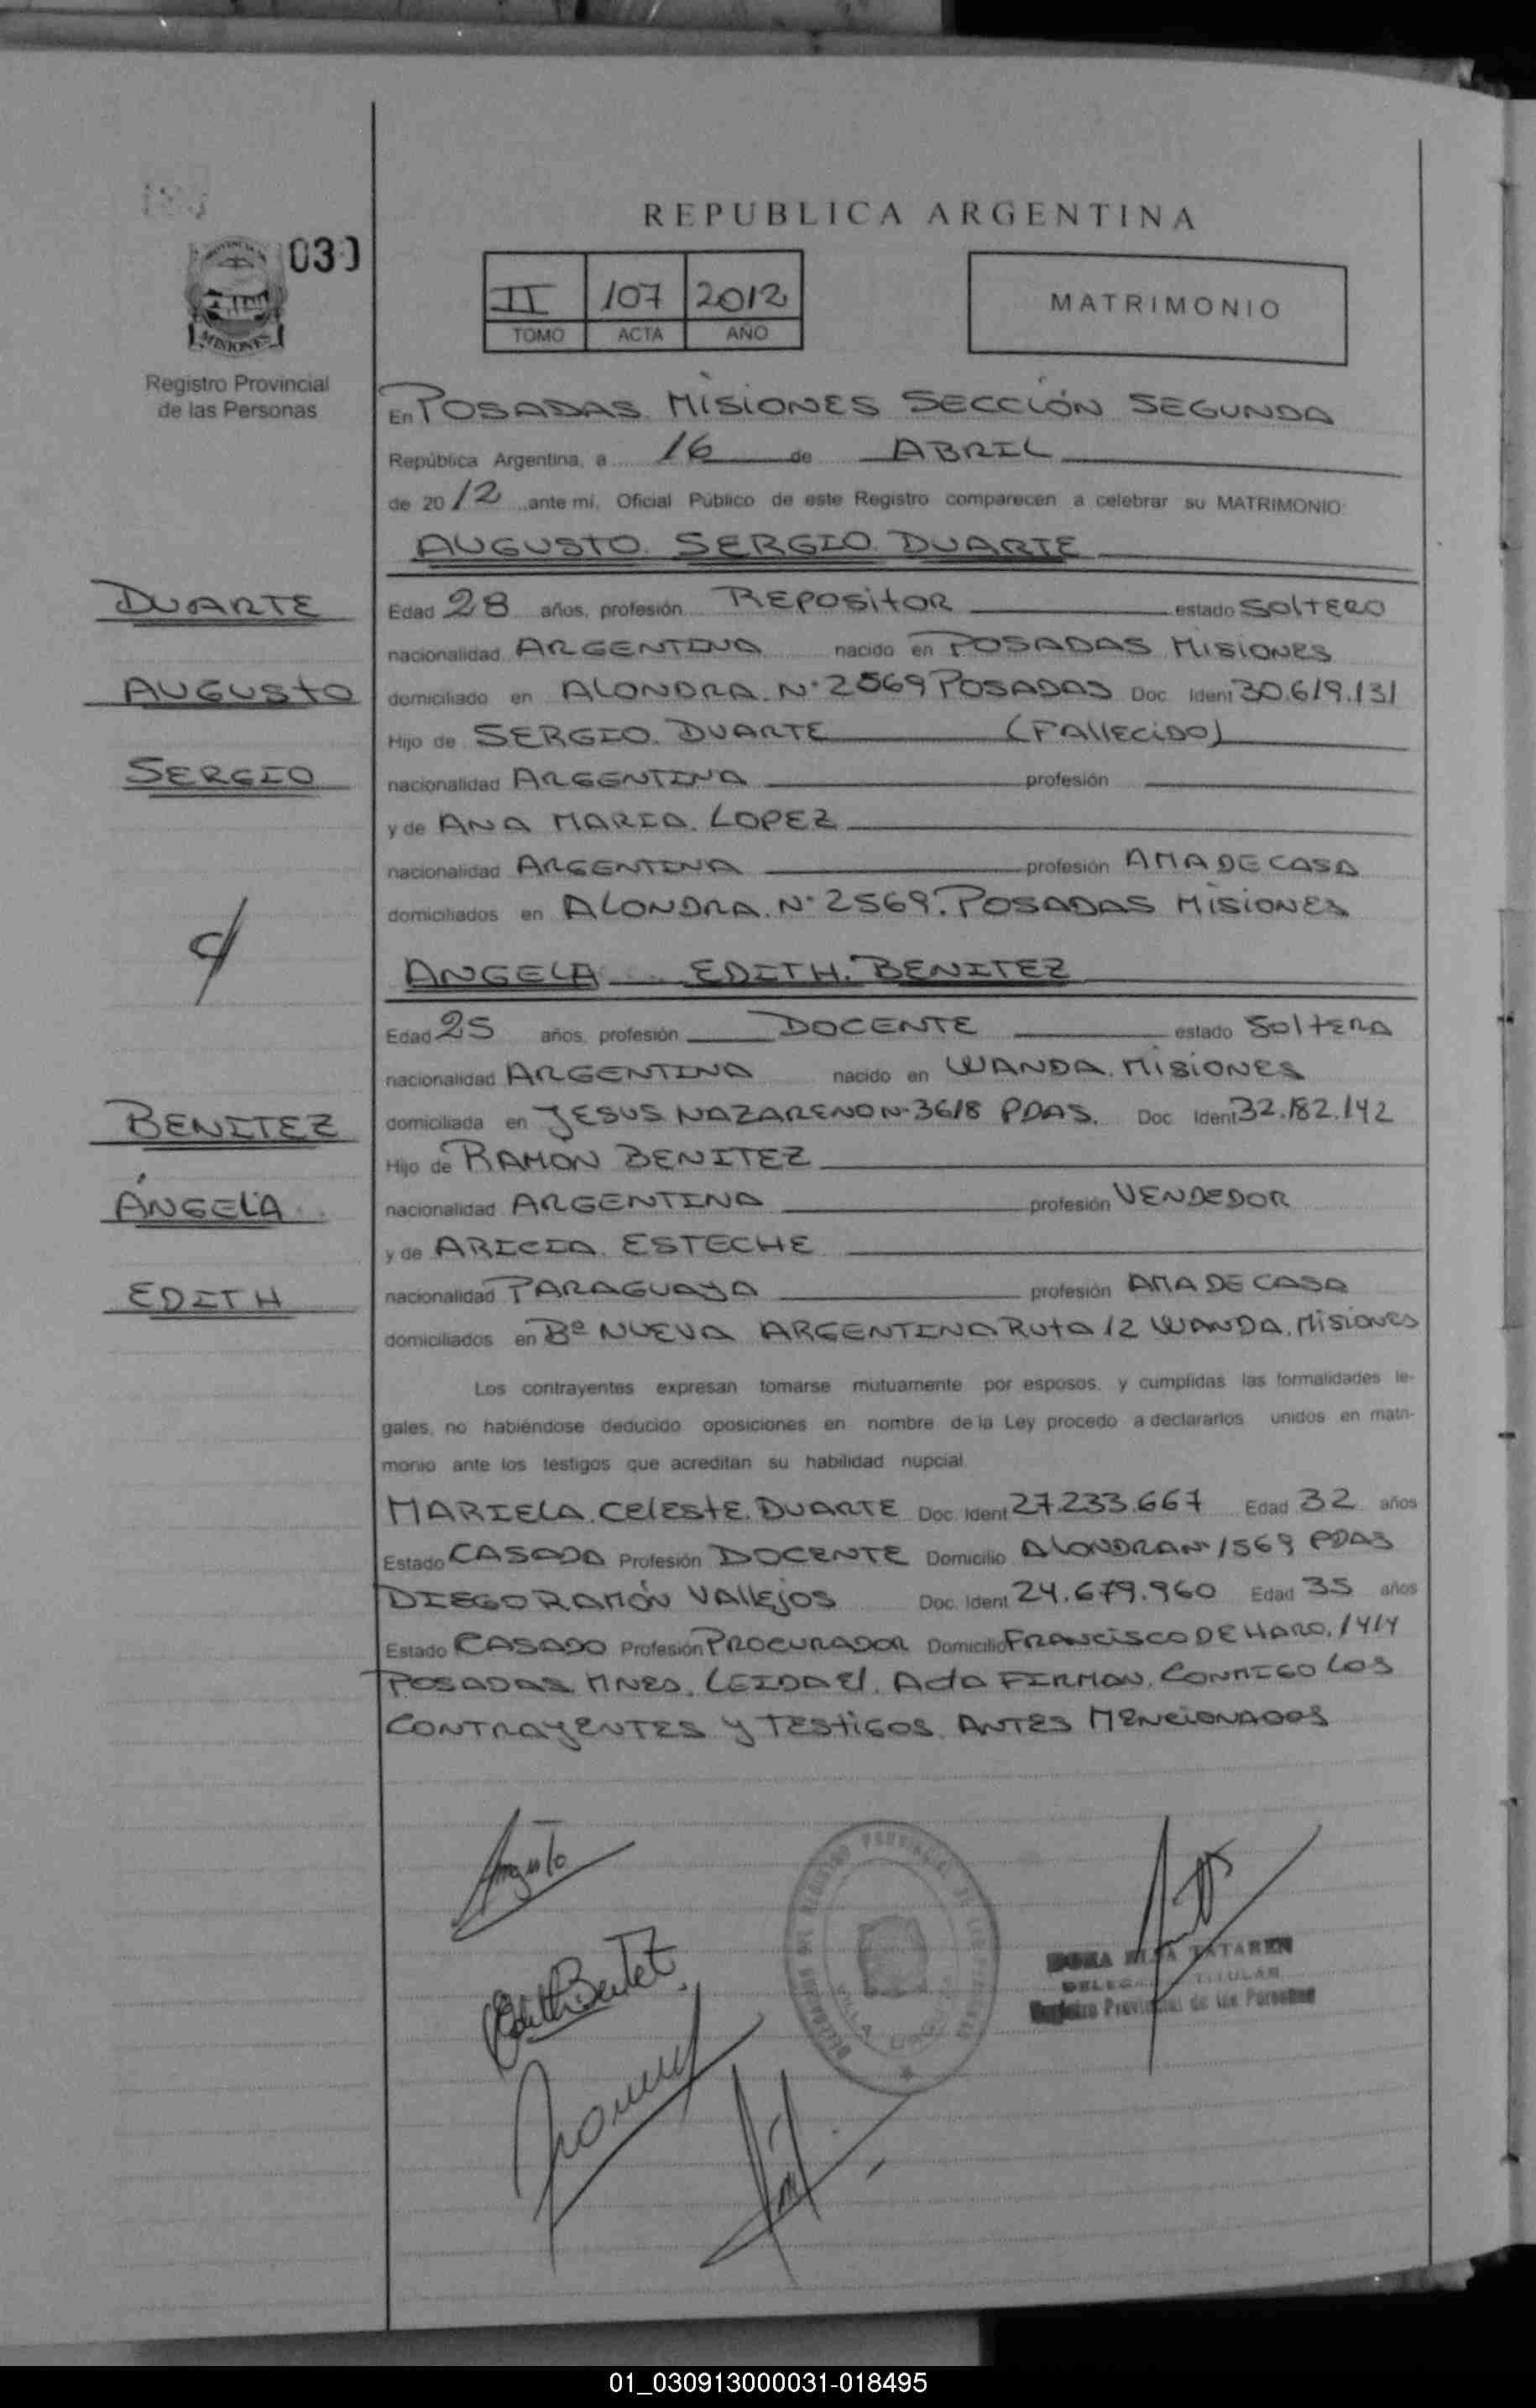 REPUBLICA ARGENTINA
MISIONES
Registro Provincial
de las Personas
II 107 2012
TOMO ACTA AÑO
MATRIMONIO
En POSADAS MISIONES SECCIÓN SEGUNDA
República Argentina, a 16 de ABRIL
de 20 12 ante mi, Oficial Público de este Registro comparecen a celebrar su MATRIMONIO:
AUGUSTO SERGIO DUARTE
DUARTE
AUGUSTO
SERGIO
Edad 28 años, profesión REPOSITOR estado SOLTERO
nacionalidad ARGENTINA nacido en POSADAS MISIONES
domiciliado en ALONDRA N° 2569 POSADAS Doc. Ident 30.619.131
Hijo de SERGIO DUARTE (FALLECIDO)
nacionalidad ARGENTINA profesión
y de ANA MARIA LOPEZ
nacionalidad ARGENTINA profesión AMA DE CASA
domiciliados en ALONDRA N° 2569. POSADAS MISIONES
ANGELA EDITH. BENITEZ
BENITEZ
ÁNGELA
EDITH
Edad 25 años, profesión DOCENTE estado SOLTERA
nacionalidad ARGENTINA nacido en WANDA MISIONES
domiciliada en JESUS NAZARENO N° 3618 PDAS. Doc. Ident 32.182.142
Hijo de RAMON BENITEZ
nacionalidad ARGENTINA profesión VENDEDOR
y de ARICIA ESTECHE
nacionalidad PARAGUAYA profesión AMA DE CASA
domiciliados en B° NUEVA ARGENTINA RUTA 12 WANDA. MISIONES
Los contrayentes expresan tomarse mutuamente por esposos, y cumplidas las formalidades le-
gales, no habiéndose deducido oposiciones en nombre de la Ley procedo a declararlos unidos en matri-
monio ante los testigos que acreditan su habilidad nupcial.
MARIELA CELESTE DUARTE Doc. Ident 27.233.667 Edad 32 años
Estado CASADA Profesión DOCENTE Domicilio ALONDRA N° 1569 PDAS
DIEGO RAMÓN VALLEJOS Doc. Ident 24.679.960 Edad 35 años
Estado CASADO Profesión PROCURADOR Domicilio FRANCISCO DE HARO. 1414
POSADAS MNES. LEIDA El. ACTA FIRMAN. CONMIGO LOS
CONTRAYENTES Y TESTIGOS. ANTES MENCIONADOS
TITULAR
Registro Provincial de las Personas
01_030913000031-018495